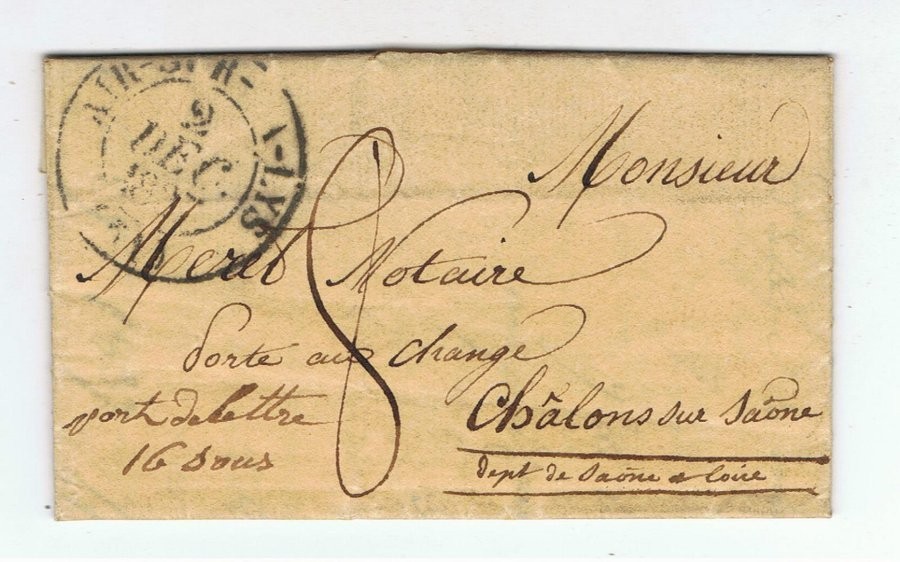 AIR-SUR-LA-LYS
2
DEC.
Monsieur
Meret Notaire
8
Porte au change
port de lettre
16 sous
Châlons sur Saône
dept de Saône & Loire